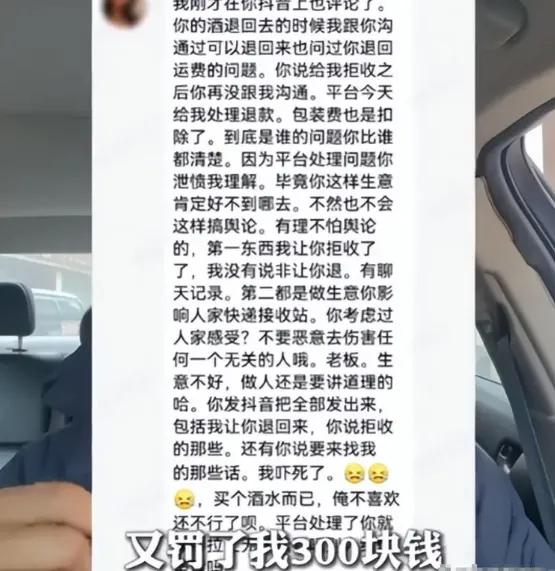 我刚才在你抖音上也评论了。
你的酒退回去的时候我跟你沟
通过可以退回来也问过你退回
运费的问题。你说给我拒收之
后你再没跟我沟通。平台今天
给我处理退款。包装费也是扣
除了。到底是谁的问题你比谁
都清楚。因为平台处理问题你
泄愤我理解。毕竟你这样生意
肯定好不到哪去。不然也不会
这样搞舆论。有理不怕舆论
的,第一东西我让你拒收了
了,我没有说非让你退。有聊
天记录。第二都是做生意你影
响人家快递接收站。你考虑过
人家感受?不要恶意去伤害任
何一个无关的人哦。老板。生
意不好,做人还是要讲道理的
哈。你发抖音把全部发出来,
包括我让你退回来,你说拒收
的那些。还有你说要来找我
的那些话。我吓死了。😝😝
😝,买个酒水而已,俺不喜欢
还不行了呗。平台处理了你就
又罚了我300块钱